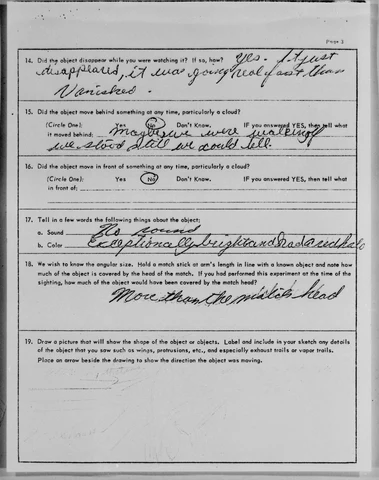 Page 3
14. Did the object disappear while you were watching it? If so, how? Yes. It just
disappeared, it was going real fast then
Vanished.
15. Did the object move behind something at any time, particularly a cloud?
(Circle One): Yes No Don't Know. IF you answered YES, then tell what
it moved behind: Maybe we were walking if
we stood still we could tell.
16. Did the object move in front of something at any time, particularly a cloud?
(Circle One): Yes No Don't Know. IF you answered YES, then tell what
in front of:
17. Tell in a few words the following things about the object:
a. Sound No sound
b. Color Exceptionally bright and had a red halo
18. We wish to know the angular size. Hold a match stick at arm's length in line with a known object and note how
much of the object is covered by the head of the match. If you had performed this experiment at the time of the
sighting, how much of the object would have been covered by the match head?
More than the match head
19. Draw a picture that will show the shape of the object or objects. Label and include in your sketch any details
of the object that you saw such as wings, protrusions, etc., and especially exhaust trails or vapor trails.
Place an arrow beside the drawing to show the direction the object was moving.